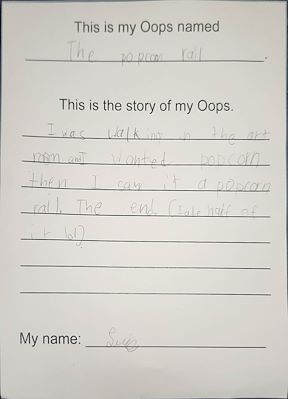 This is my Oops named
The popcorn rall.
This is the story of my Oops.
I was walking in the art
room and I wanted popcorn
then I saw it a popcorn
rall. The end. (I ate half of
it lol)
My name: